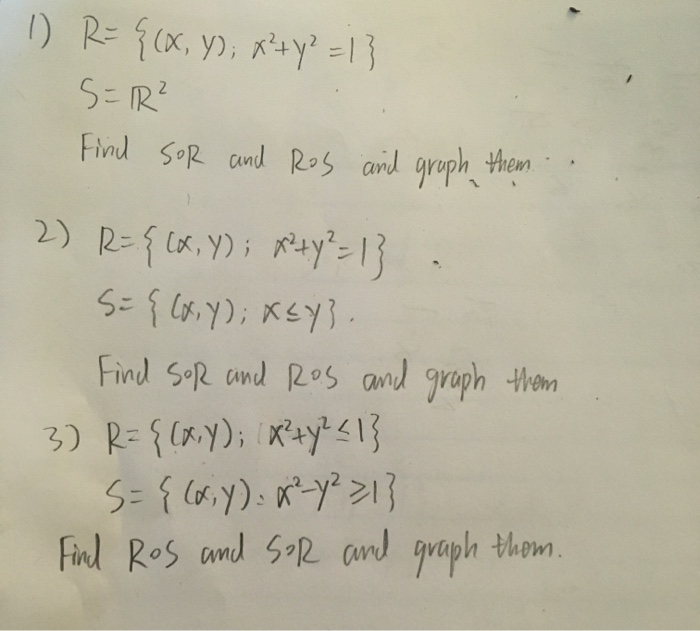 1) R= {(x, y); x²+y² =1}
S= ℝ²
Find SoR and RoS and graph them.
2) R= { (x, y); x²+y²=1}
S= { (x,y); x≤y}.
Find SoR and RoS and graph them
3) R= {(x,y); x²+y²≤1}
S= { (x,y): x²-y² ≥1}
Find RoS and SoR and graph them.